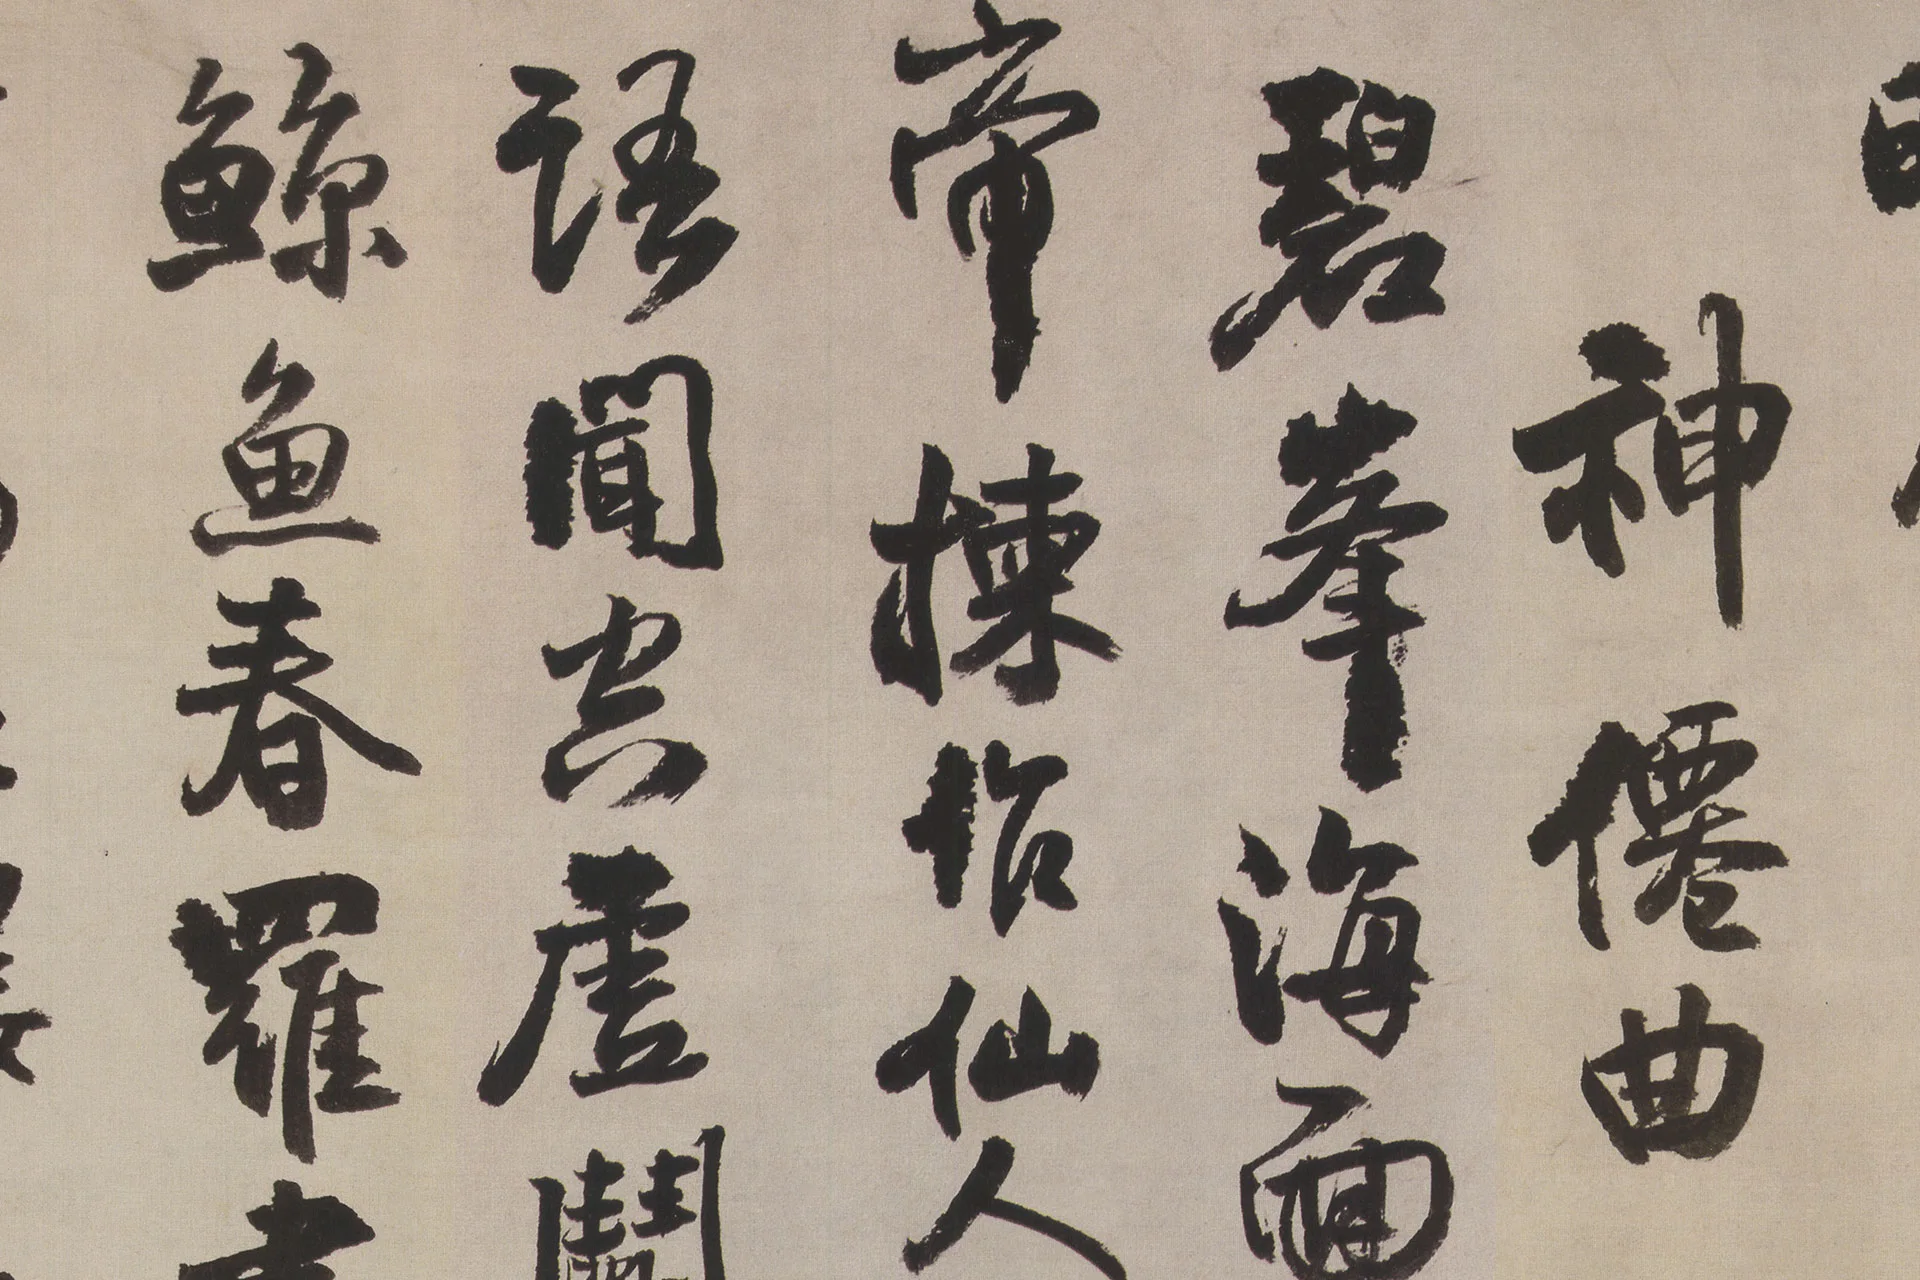 神僊曲
碧峯海面
帝揀作仙人
語聞空虛鬪
鯨魚春羅書